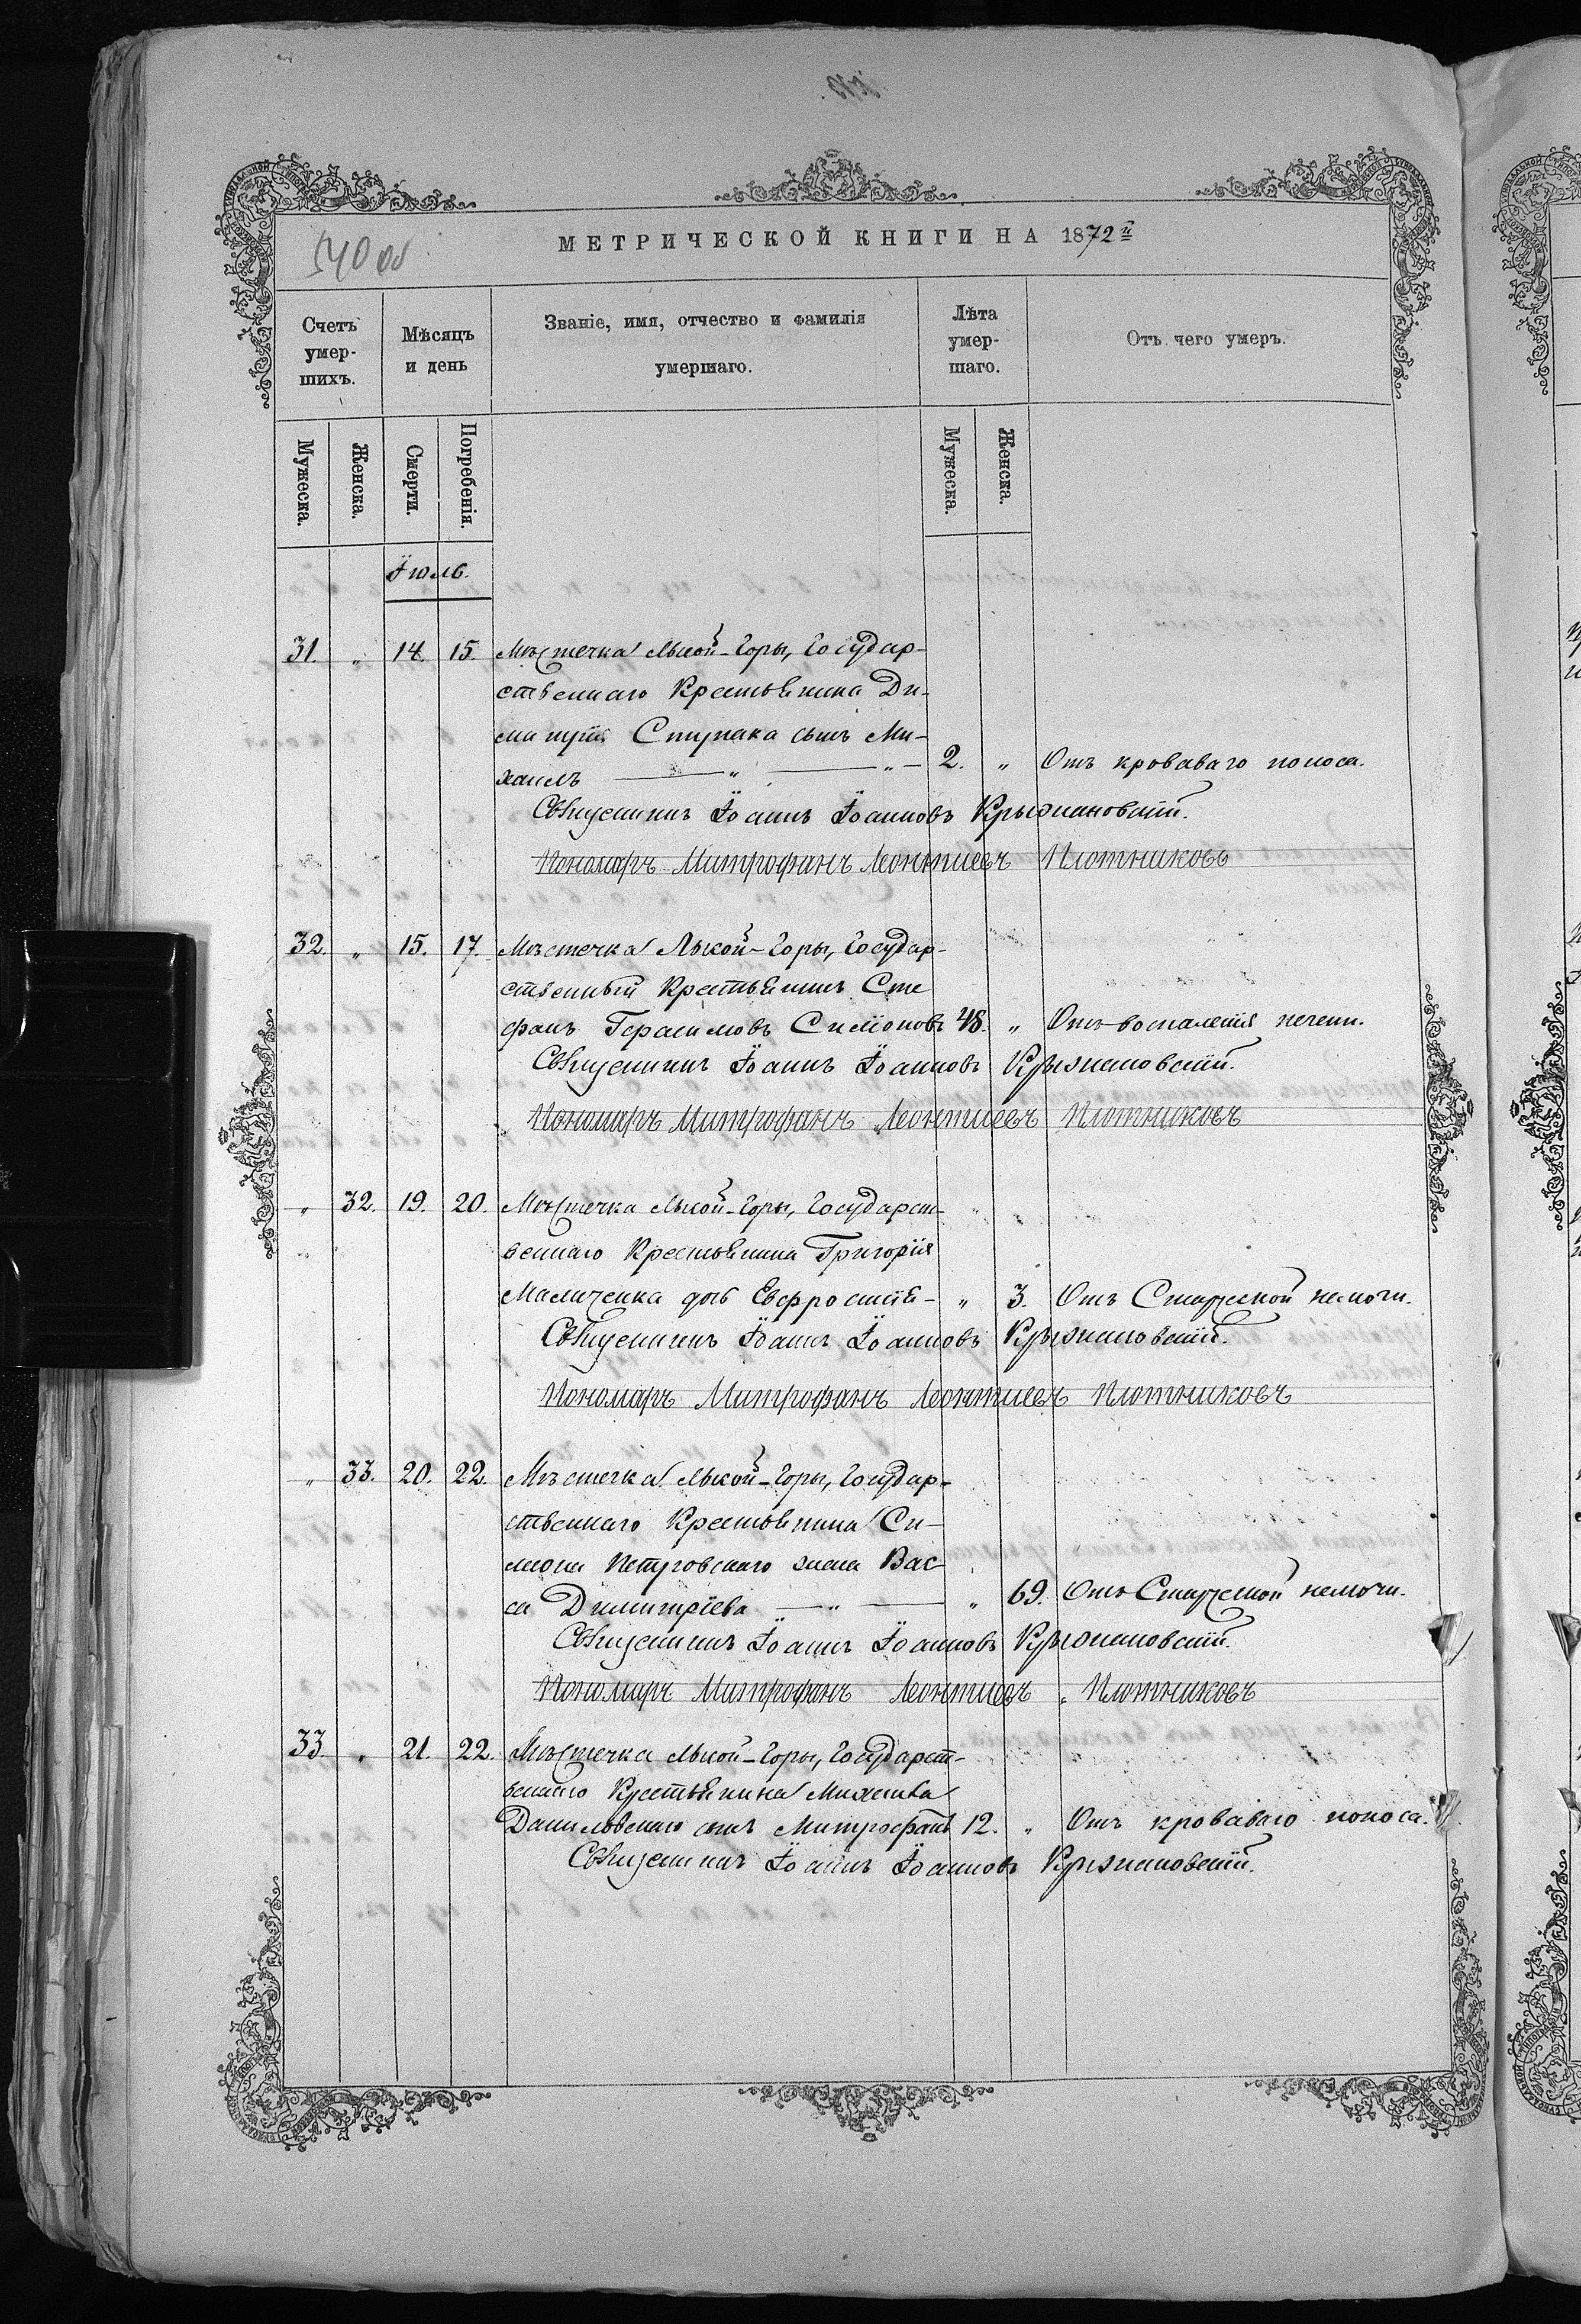 540 об
МЕТРИЧЕСКОЙ КНИГИ НА 1872й
Счетъ умер- шихъ.
Мѣсяцъ и день
Званіе, имя, отчество и фамилія умершаго.
Лѣта умер- шаго.
Отъ чего умеръ.
Мужеска. Женска. Смерти. Погребенія. Мужеска. Женска.
Іюль.
31. " 14. 15. Мѣстечка Лысой-Горы, Государ-
ственнаго Крестьянина Ди-
митрія Ступака сынъ Ми-
хаилъ — " — " — 2. " Отъ кроваваго поноса.
Священникъ Іоаннъ Іоанновъ Крыжановскій.
Пономарь Митрофанъ Леонтіевъ Плотниковъ
32. " 15. 17. Мѣстечка Лысой-Горы, Государ-
ственный Крестьянинъ Сте
фанъ Герасимовъ Симоновъ 48. " Отъ воспаленія печени.
Священникъ Іоаннъ Іоанновъ Крыжановскій.
Пономарь Митрофанъ Леонтиевъ Плотниковъ
" 32. 19. 20. Мѣстечка Лысой-Горы, Государст-
веннаго Крестьянина Григорія
дочь Евфросинія - " 3. Отъ Старческой немочи.
Священникъ Іоаннъ Іоанновъ Крыжановскій.
Пономарь Митрофанъ Леонтиевъ Плотниковъ
" 33. 20. 22. Мѣстечка Лысой-Горы, Государ-
ственнаго Крестьянина Си-
меона Петровскаго жена Вас
са Димитріева — " — " 69. Отъ Старческой немочи.
Священникъ Іоаннъ Іоанновъ Крыжановскій.
Пономарь Митрофанъ Леонтиевъ Плотниковъ
33. " 21. 22. Мѣстечка Лысой-Горы, Государст-
веннаго Крестьянина Михаила
Даниловскаго сынъ Митрофанъ 12. " Отъ кроваваго поноса.
Священникъ Іоаннъ Іоанновъ Крыжановскій.